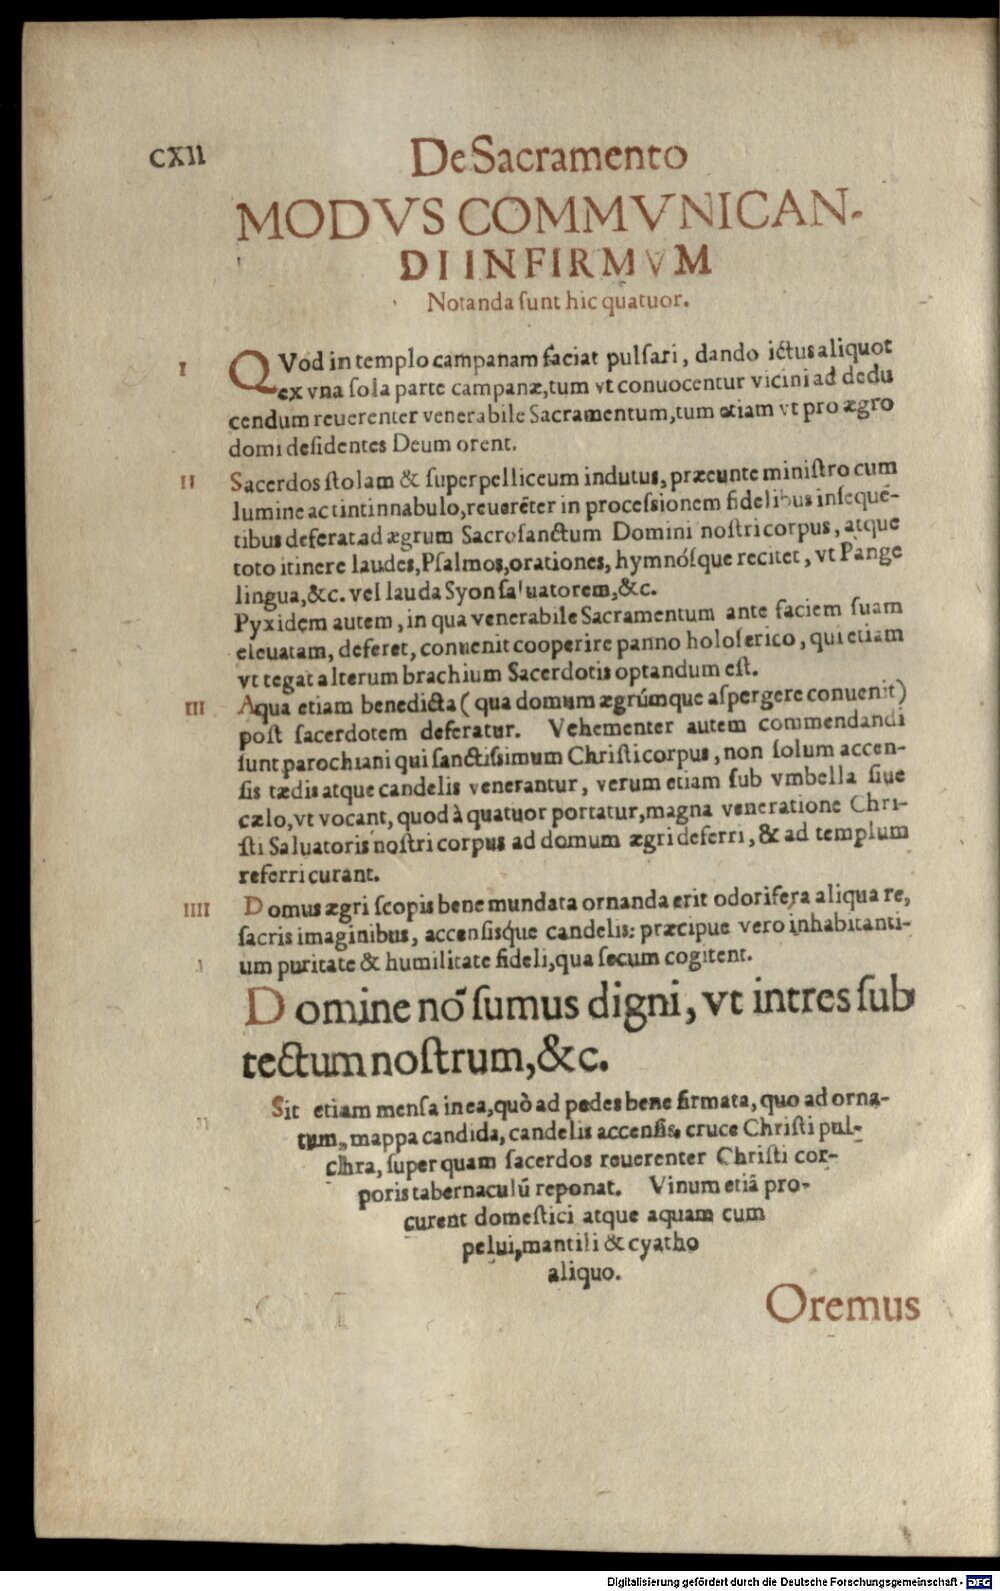 CXII
De Sacramento
MODVS COMMVNICAN-
DI INFIRMVM
Notanda sunt hic quatuor.
I QVod in templo campanam faciat pulsari, dando ictus aliquot
ex vna sola parte campanæ, tum vt conuocentur vicini ad dedu
cendum reuerenter venerabile Sacramentum, tum etiam vt pro ægro
domi desidentes Deum orent.
II Sacerdos stolam & superpelliceum indutus, præeunte ministro cum
lumine ac tintinnabulo, reuerēter in processionem fidelibus insequē-
tibus deferat ad ægrum Sacrosanctum Domini nostri corpus, atque
toto itinere laudes, Psalmos, orationes, hymnósque recitet, vt Pange
lingua, &c. vel lauda Syon saluatorem, &c.
Pyxidem autem, in qua venerabile Sacramentum ante faciem suam
eleuatam, deferet, conuenit cooperire panno holoserico, qui etiam
vt tegat alterum brachium Sacerdotis optandum est.
III Aqua etiam benedicta ( qua domum ægrúmque aspergere conuenit )
post sacerdotem deferatur. Vehementer autem commendandi
sunt parochiani qui sanctissimum Christi corpus, non solum accen-
sis tædis atque candelis venerantur, verum etiam sub vmbella siue
cælo, vt vocant, quod à quatuor portatur, magna veneratione Chri-
sti Saluatoris nostri corpus ad domum ægri deferri, & ad templum
referri curant.
IIII Domus ægri scopis bene mundata ornanda erit odorifera aliqua re,
sacris imaginibus, accensisq́ue candelis: præcipue vero inhabitanti-
um puritate & humilitate fideli, qua secum cogitent.
Domine nō sumus digni, vt intres sub
tectum nostrum, &c.
Sit etiam mensa in ea, quò ad pedes bene firmata, quo ad orna-
tum, mappa candida, candelis accensis, cruce Christi pul-
chra, super quam sacerdos reuerenter Christi cor-
poris tabernaculū reponat. Vinum etiā pro-
curent domestici atque aquam cum
pelui, mantili & cyatho
aliquo.
Oremus
Digitalisierung gefördert durch die Deutsche Forschungsgemeinschaft - DFG